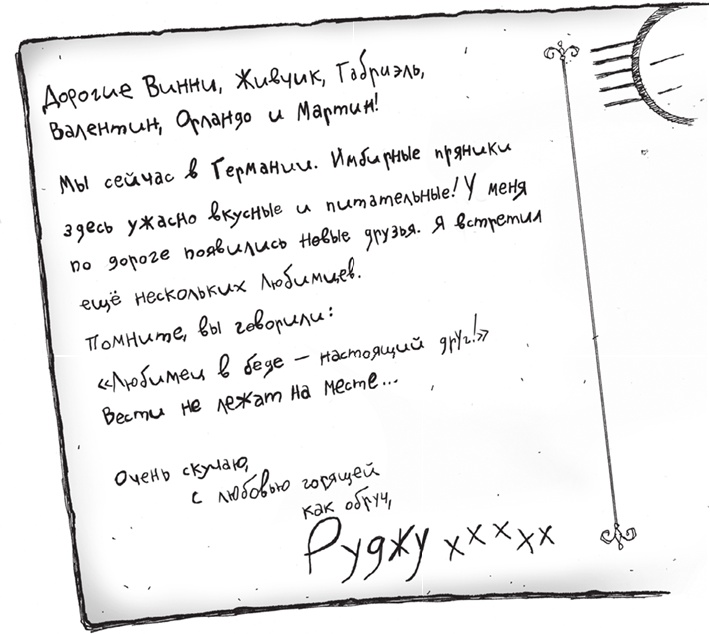 Дорогие Винни, Живчик, Габриэль,
Валентин, Орландо и Мартин!
Мы сейчас в Германии. Имбирные пряники
здесь ужасно вкусные и питательные! У меня
по дороге появились новые друзья. Я встретил
ещё нескольких Любимцев.
Помните, вы говорили:
«Любимец в беде – настоящий друг!»
Вести не лежат на месте...
Очень скучаю,
с любовью горящей
как обруч,
Руджу xxxxx